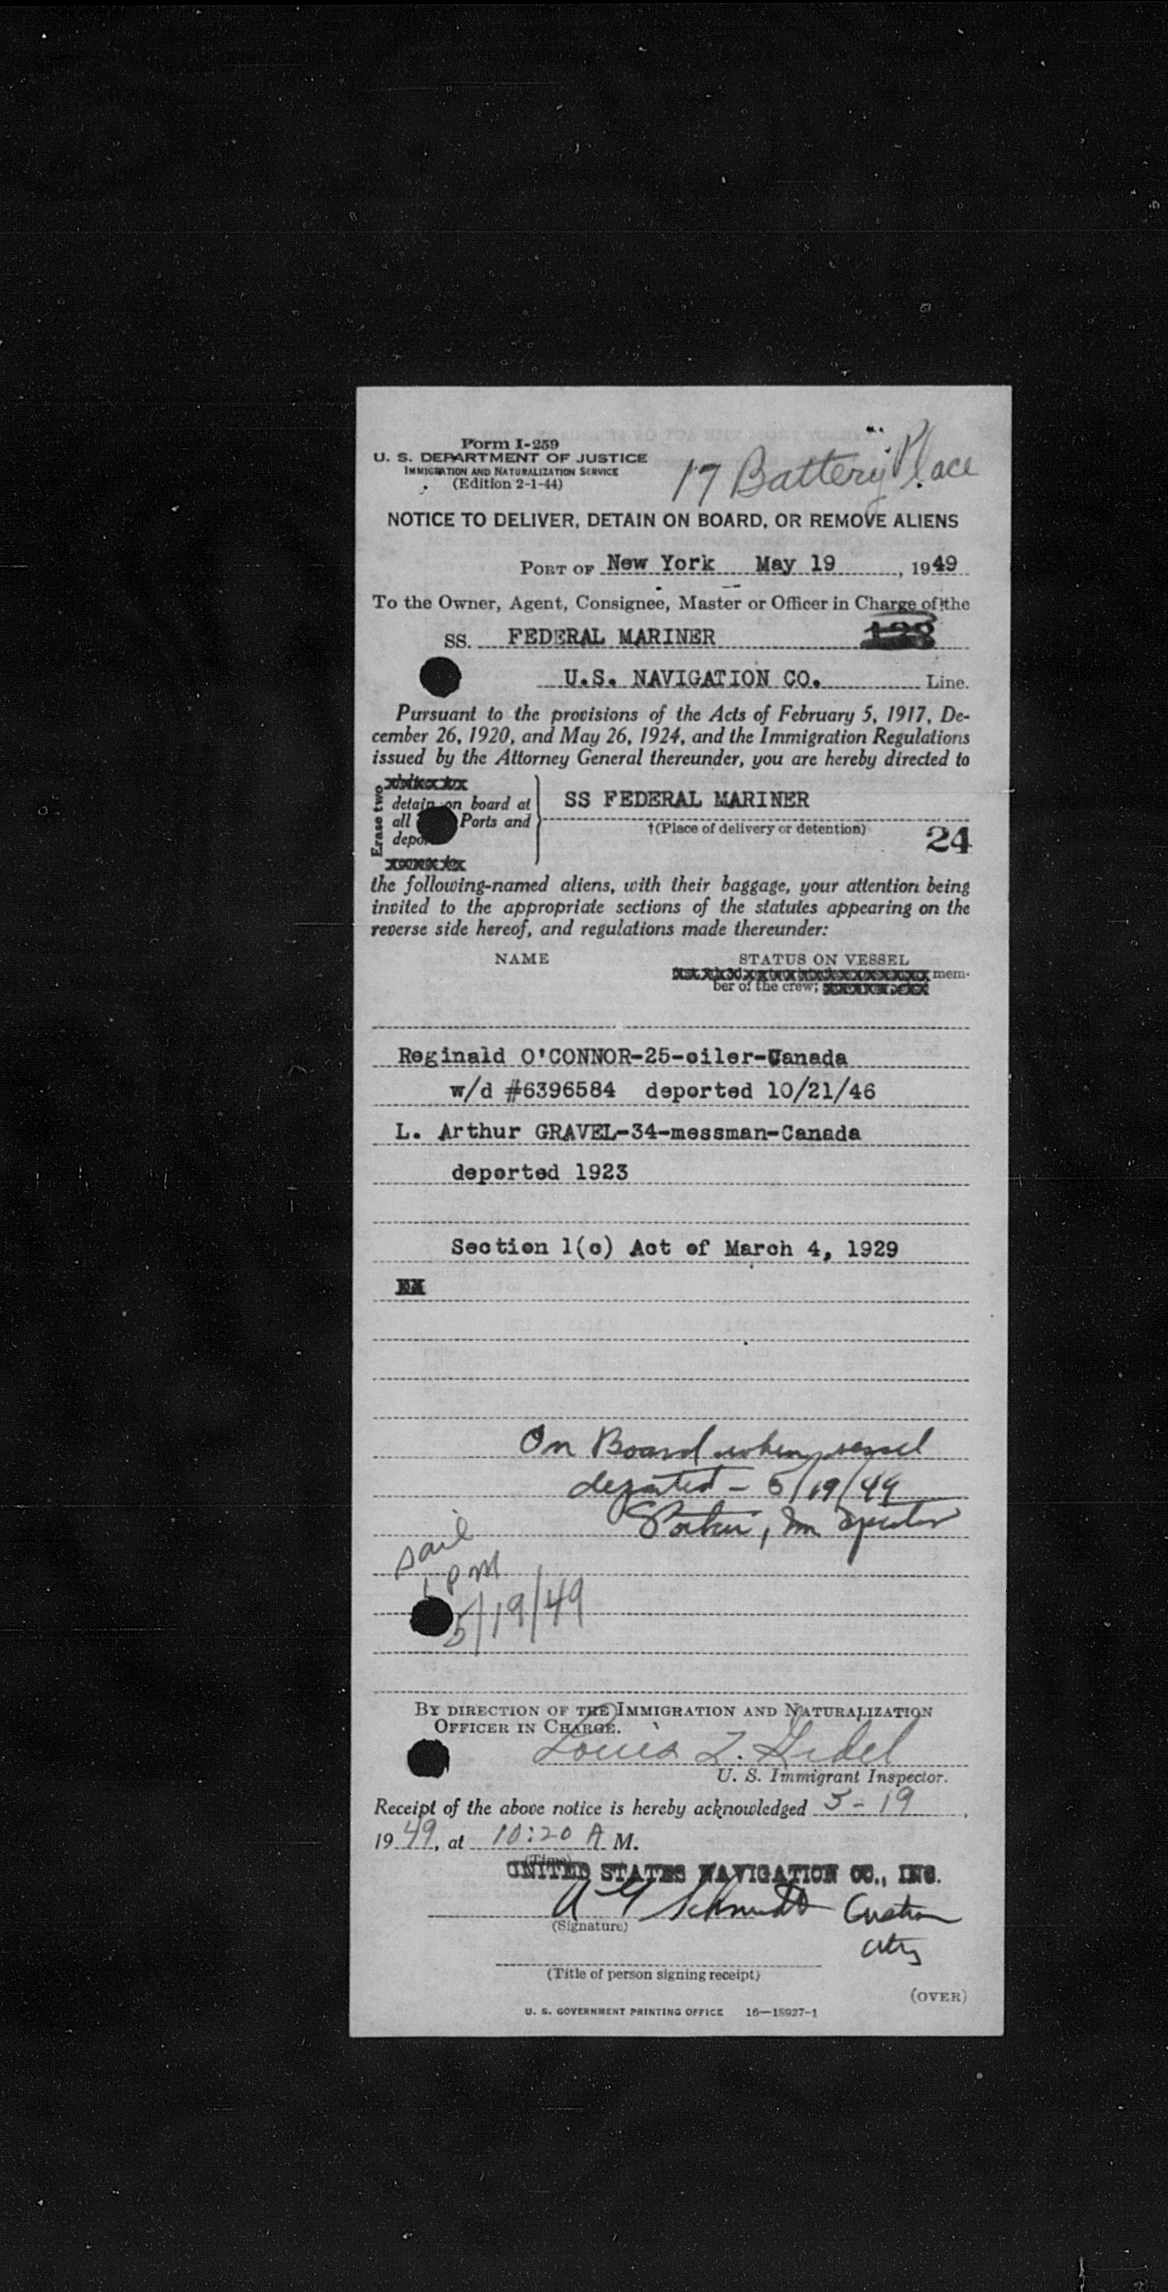 Form I-259
U. S. DEPARTMENT OF JUSTICE
IMMIGRATION AND NATURALIZATION SERVICE
(Edition 2-1-44)
17 Battery Place
NOTICE TO DELIVER, DETAIN ON BOARD, OR REMOVE ALIENS
PORT OF New York May 19, 1949
To the Owner, Agent, Consignee, Master or Officer in Charge of the
SS. FEDERAL MARINER
U.S. NAVIGATION CO. Line.
Pursuant to the provisions of the Acts of February 5, 1917, De-
cember 26, 1920, and May 26, 1924, and the Immigration Regulations
issued by the Attorney General thereunder, you are hereby directed to
Erase two
detain on board at
all Ports and
SS FEDERAL MARINER
†(Place of delivery or detention)
24
the following-named aliens, with their baggage, your attention being
invited to the appropriate sections of the statutes appearing on the
reverse side hereof, and regulations made thereunder:
NAME STATUS ON VESSEL
mem-
ber of the crew;
Reginald O'CONNOR-25-oiler-Canada
w/d #6396584 deported 10/21/46
L. Arthur GRAVEL-34-messman-Canada
deported 1923
Section 1(c) Act of March 4, 1929
On Board when vessel
departed - 5/19/49
sail
PM
5/19/49
BY DIRECTION OF THE IMMIGRATION AND NATURALIZATION
OFFICER IN CHARGE.
Louis
U. S. Immigrant Inspector.
Receipt of the above notice is hereby acknowledged 5-19,
1949, at 10:20 A M.
(Time)
UNITED STATES NAVIGATION CO., INC.
Schmidt
(Signature)
(Title of person signing receipt)
(OVER)
U. S. GOVERNMENT PRINTING OFFICE 16—18927-1